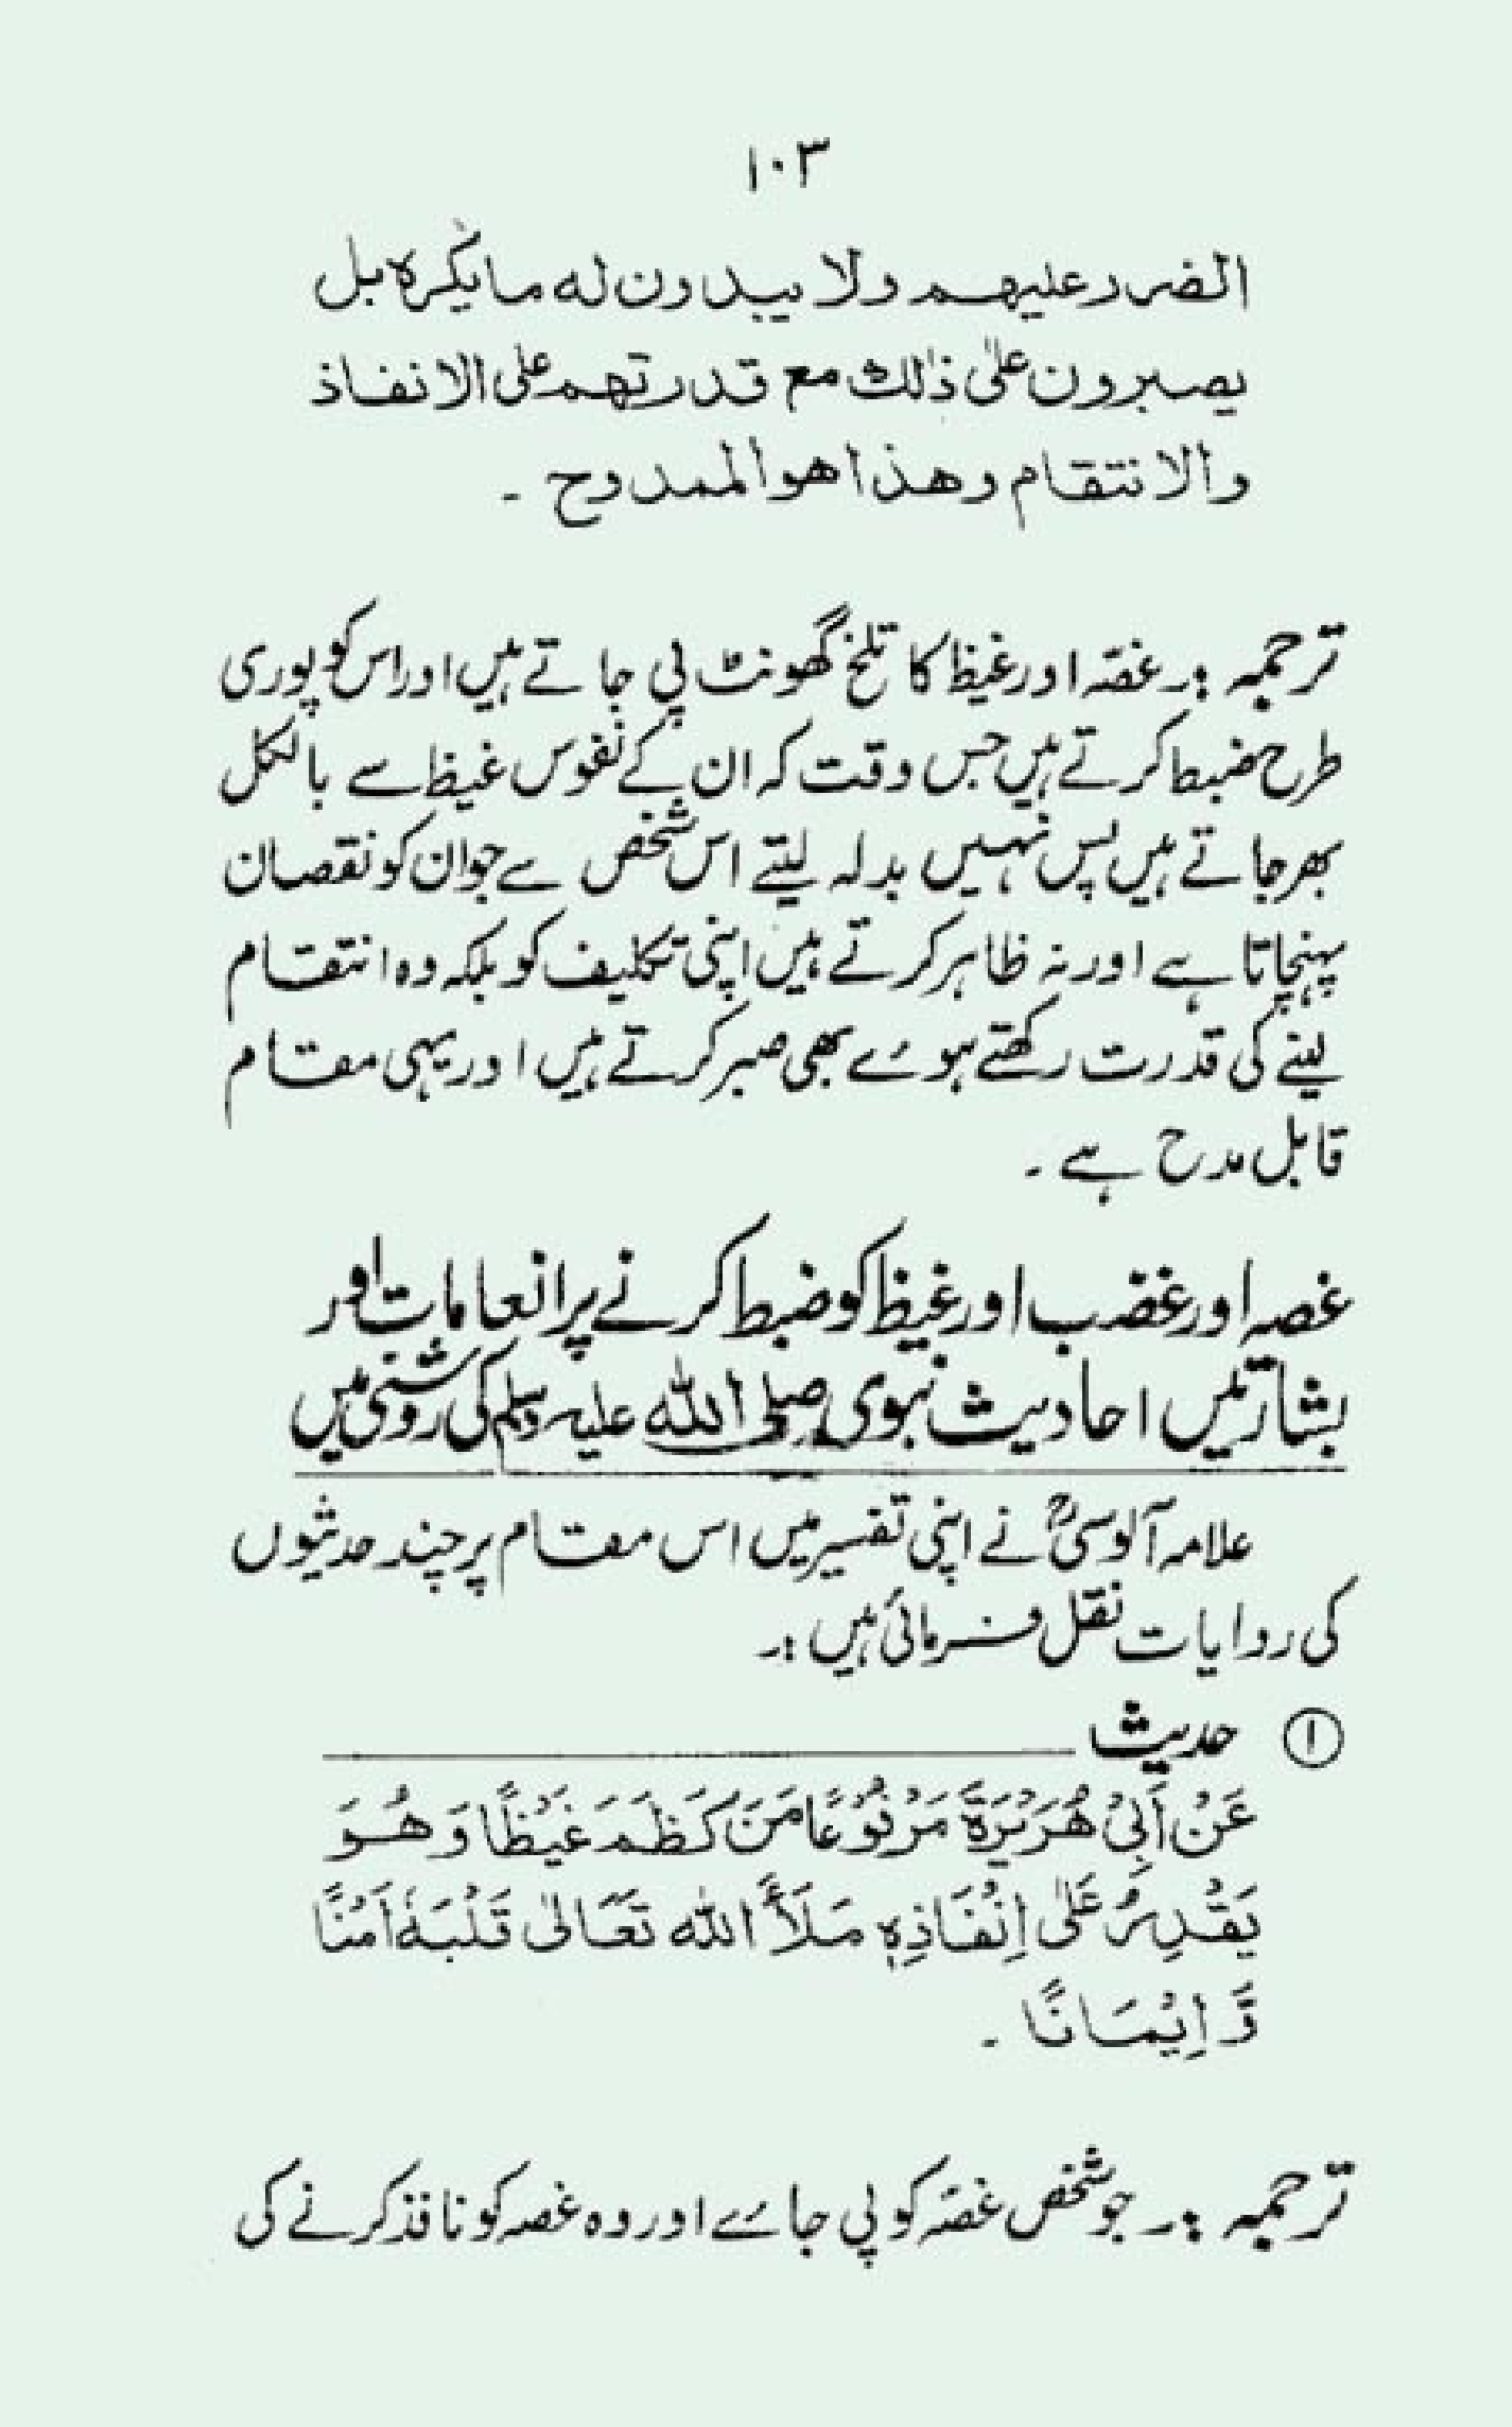 ۱۰۳
الضرر عليهم ولا يبدون له ما يكره بل
يصبرون علىٰ ذٰلك مع قدرتهم على الانفاذ
والانتقام وهذا هو الممدوح ۔
ترجمہ :۔ غصّہ اور غیظ کا تلخ گھونٹ پی جاتے ہیں اور اس کو پوری
طرح ضبط کرتے ہیں جس وقت کہ ان کے نفوس غیظ سے بالکل
بھر جاتے ہیں پس نہیں بدلہ لیتے اس شخص سے جو ان کو نقصان
پہنچاتا ہے اور نہ ظاہر کرتے ہیں اپنی تکلیف کو بلکہ وہ انتقام
لینے کی قدرت رکھتے ہوئے بھی صبر کرتے ہیں اور یہی مقام
قابل مدح ہے ۔
غصہ اور غضب اور غیظ کو ضبط کرنے پر انعامات اور
بشارتیں احادیث نبوی صلی اللہ علیہ وسلم کی روشنی میں
علامہ آلوسیؒ نے اپنی تفسیر میں اس مقام پر چند حدیثوں
کی روایات نقل فرمائی ہیں :۔
① حدیث
عَنْ اَبِیْ هُرَیْرَةَ مَرْفُوْعًا مَنْ كَظَمَ غَیْظًا وَهُوَ
یَقْدِرُ عَلٰی اِنْفَاذِهٖ مَلَأَ الله تَعَالٰی قَلْبَهٗ اَمْنًا
وَّ اِیْمَانًا ۔
ترجمہ :۔ جو شخص غصّہ کو پی جائے اور وہ غصہ کو نافذ کرنے کی